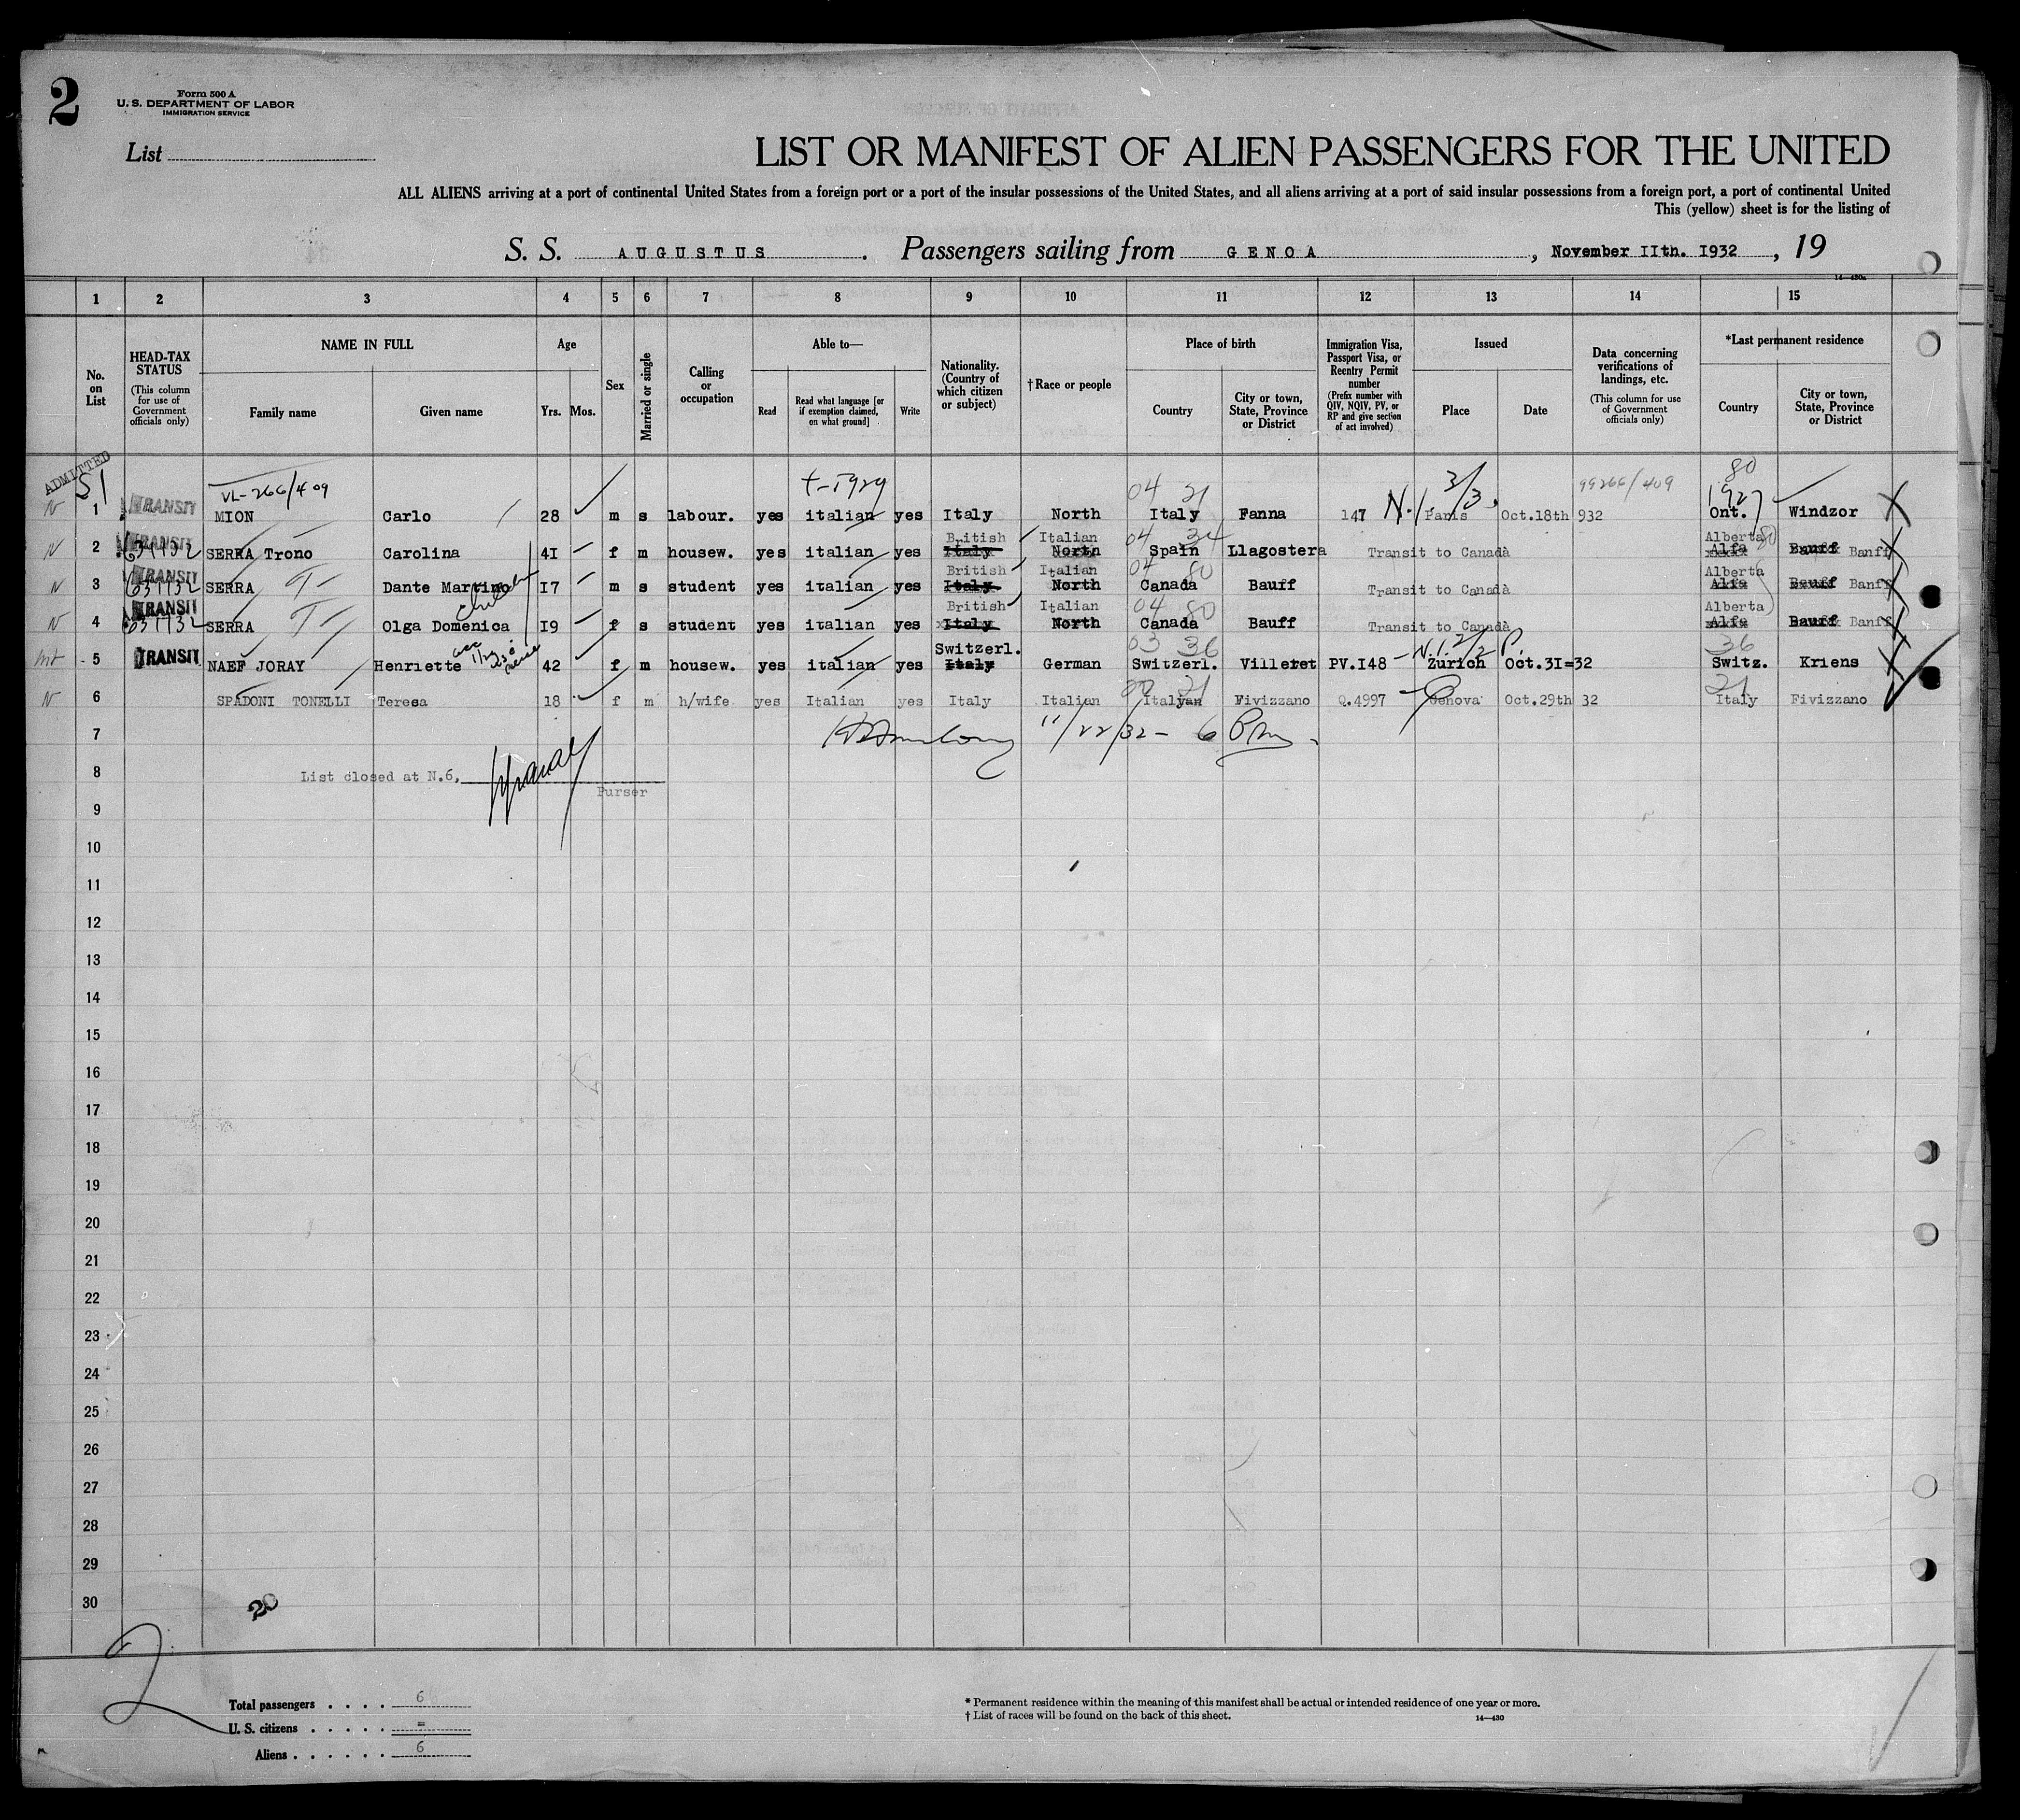 2
Form 500 A
U. S. DEPARTMENT OF LABOR
IMMIGRATION SERVICE
List
LIST OR MANIFEST OF ALIEN PASSENGERS FOR THE UNITED
ALL ALIENS arriving at a port of continental United States from a foreign port or a port of the insular possessions of the United States, and all aliens arriving at a port of said insular possessions from a foreign port, a port of continental United
This (yellow) sheet is for the listing of
S. S. AUGUSTUS. Passengers sailing from GENOA, November IIth. 1932, 19
14—430a
1 2 3 4 5 6 7 8 9 10 11 12 13 14 15
No. on List
HEAD-TAX STATUS (This column for use of Government officials only)
NAME IN FULL
Family name Given name
Age
Yrs. Mos.
Sex
Married or single
Calling or occupation
Able to—
Read Read what language [or if exemption claimed, on what ground] Write
Nationality. (Country of which citizen or subject)
† Race or people
Place of birth
Country City or town, State, Province or District
Immigration Visa, Passport Visa, or Reentry Permit number (Prefix number with QIV, NQIV, PV, or RP and give section of act involved)
Issued
Place Date
Data concerning verifications of landings, etc. (This column for use of Government officials only)
*Last permanent residence
Country City or town, State, Province or District
ADMITTED 51 VL-266/409 t-1929 04 21 3/3 99266/409 80
N 1 TRANSIT MION Carlo 28 m s labour. yes italian yes Italy North Italy Fanna 147 N. Paris Oct.18th 932 1927 Ont. Windzor X
British Italian 04 34 Alberta 80
N 2 TRANSIT SERRA Trono Carolina 4I f m housew. yes italian yes Italy North Spain Llagostera Transit to Canadà Alfa Bauff Banff X
British Italian 04 80 Alberta
N 3 TRANSIT SERRA T- Dante Martino I7 m s student yes italian yes Italy North Canada Bauff Transit to Canadà Alfa Bauff Banff X
British Italian 04 80 Alberta
N 4 TRANSIT SERRA T- Olga Domenica I9 f s student yes italian yes Italy North Canada Bauff Transit to Canadà Alfa Bauff Banff X
Switzerl. 03 36 36
5 TRANSIT NAEF JORAY Henriette 42 f m housew. yes italian yes Italy German Switzerl. Villeret PV.I48 Zurich Oct.3I=32 Switz. Kriens X
21 21
N 6 SPADONI TONELLI Teresa 18 f m h/wife yes Italian yes Italy Italian Italyan Fivizzano Q.4997 Genova Oct.29th 32 Italy Fivizzano
7 11/22/32 - 6
8 List closed at N.6,
Purser
9
10
11
12
13
14
15
16
17
18
19
20
21
22
23
24
25
26
27
28
29
30
20
2
Total passengers . . . . 6
U. S. citizens . . . . . =
Aliens . . . . . . 6
* Permanent residence within the meaning of this manifest shall be actual or intended residence of one year or more.
† List of races will be found on the back of this sheet.
14—430